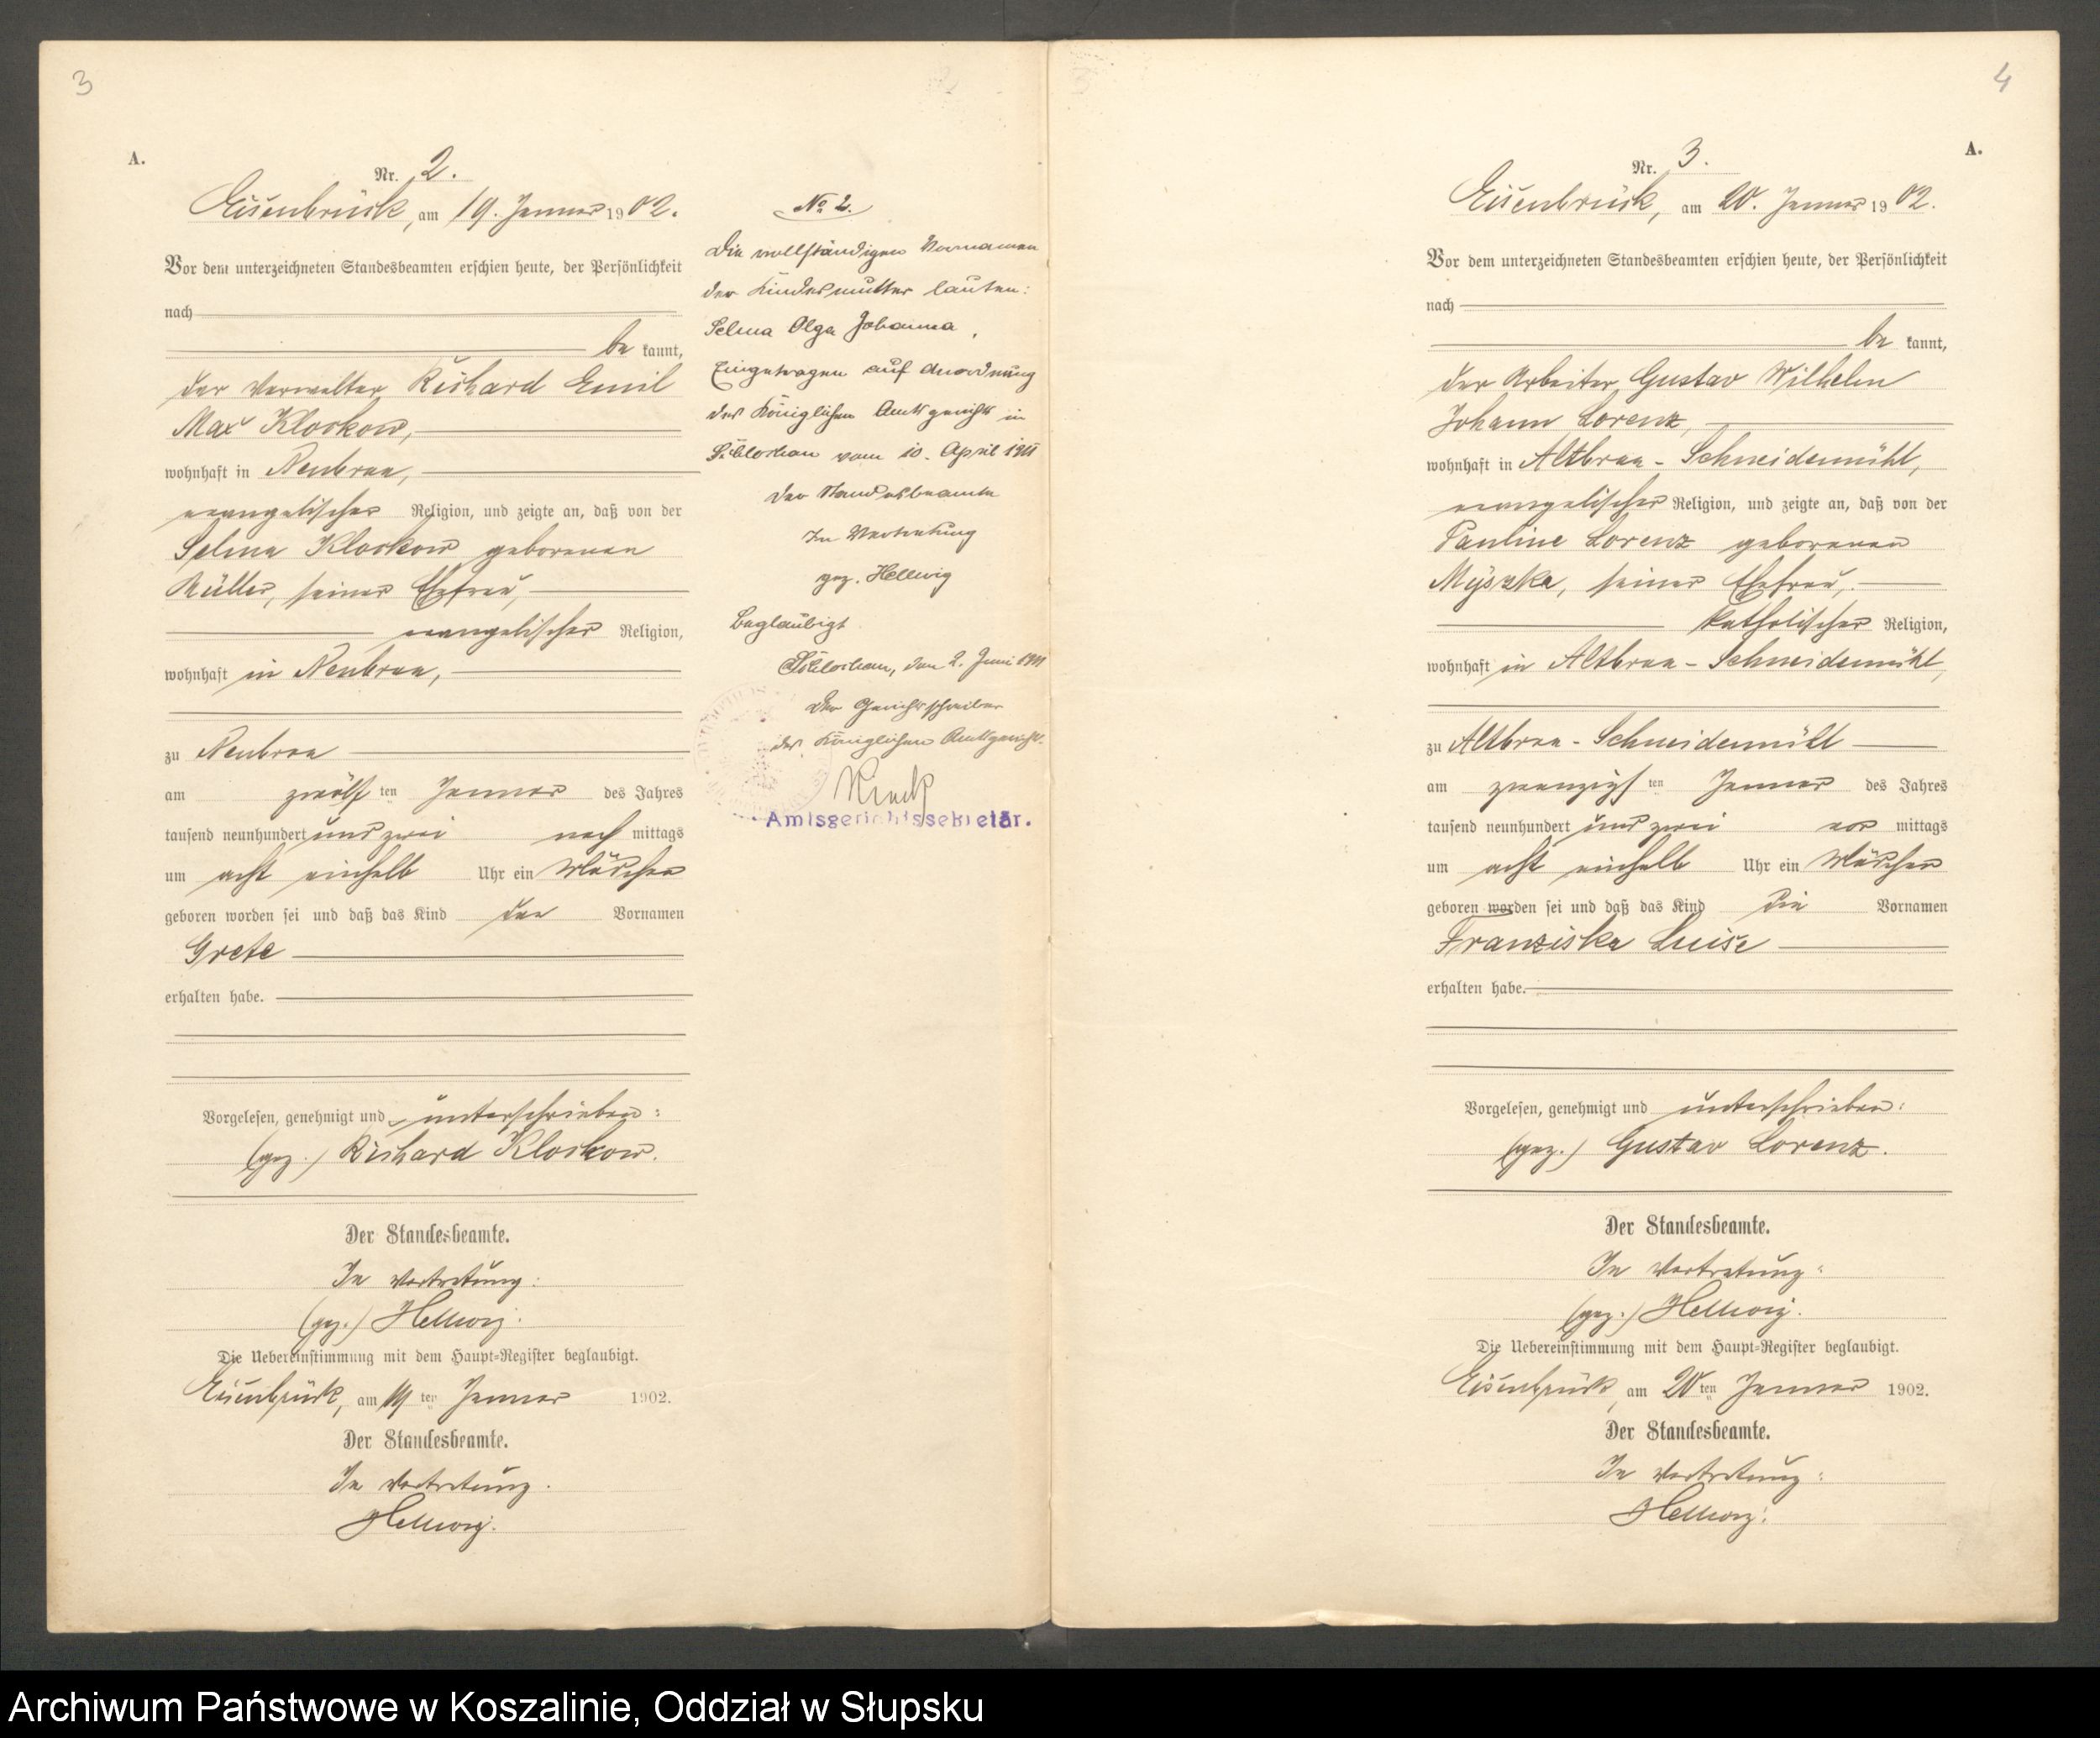 3
A.
Nr. 2.
Eisenbrück, am 19. Januar 1902.
Vor dem unterzeichneten Standesbeamten erschien heute, der Persönlichkeit
nach
be kannt,
der Verwalter Richard Emil
Max Kloskow,
wohnhaft in Neubraa,
evangelischer Religion, und zeigte an, daß von der
Selma Kloskow geborenen
Müller, seiner Ehefrau,
evangelischer Religion,
wohnhaft in Neubraa,
zu Neubraa
am zwölf ten Januar des Jahres
tausend neunhundert und zwei nach mittags
um acht einhalb Uhr ein Mädchen
geboren worden sei und daß das Kind den Vornamen
Grete
erhalten habe.
Vorgelesen, genehmigt und unterschrieben:
(gez.) Richard Kloskow.
Der Standesbeamte.
In Vertretung:
(gez.) Hellwig.
Die Uebereinstimmung mit dem Haupt-Register beglaubigt.
Eisenbrück, am 19 ten Januar 1902.
Der Standesbeamte.
In Vertretung.
Hellwig.
No 2.
Die vollständigen Vornamen
der Kindesmutter lauten:
Selma Olga Johanna,
Eingetragen auf Anordnung
des Königlichen Amtsgerichts in
Schlochau vom 10. April 1911
Der Standesbeamte
In Vertretung
gez. Hellwig
Beglaubigt
Schlochau, den 2. Juni 1911
Der Gerichtsschreiber
des Königlichen Amtsgerichts.
Amtsgerichtssekretär.
4
A.
Nr. 3.
Eisenbrück, am 20. Januar 1902.
Vor dem unterzeichneten Standesbeamten erschien heute, der Persönlichkeit
nach
be kannt,
der Arbeiter Gustav Wilhelm
Johann Lorenz,
wohnhaft in Altbraa-Schneidemühl,
evangelischer Religion, und zeigte an, daß von der
Pauline Lorenz geborenen
Myszka, seiner Ehefrau,
katholischer Religion,
wohnhaft in Altbraa-Schneidemühl,
zu Altbraa-Schneidemühl
am zwanzigs ten Januar des Jahres
tausend neunhundert und zwei vor mittags
um acht einhalb Uhr ein Mädchen
geboren worden sei und daß das Kind die Vornamen
Franziska Luise
erhalten habe.
Vorgelesen, genehmigt und unterschrieben:
(gez.) Gustav Lorenz.
Der Standesbeamte.
In Vertretung:
(gez.) Hellwig.
Die Uebereinstimmung mit dem Haupt-Register beglaubigt.
Eisenbrück, am 20 ten Januar 1902.
Der Standesbeamte.
In Vertretung:
Hellwig.
Archiwum Państwowe w Koszalinie, Oddział w Słupsku